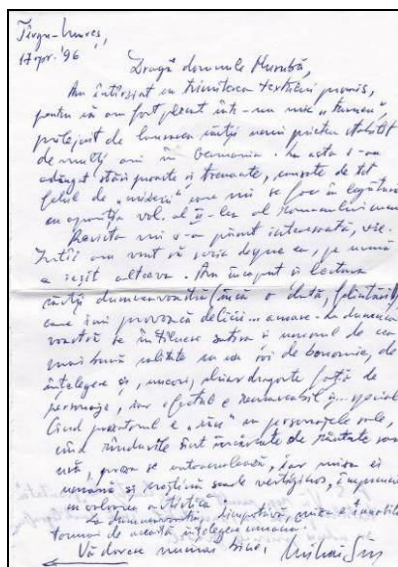 Târgu-Mureș,
17 apr. '96
Dragă domnule Murubă,
Am întârziat cu trimiterea textului promis,
pentru că am fost plecat într-un mic „turneu”,
prilejuit de lansarea cărții unui prieten stabilit
de mulți ani în Germania. La asta s-au
adăugat stări proaste și tremante, cauzate de tot
felul de „mizerii” care mi se fac în legătură
cu apariția vol. al II-lea al romanului meu.
Revista mi s-a părut interesantă, vie.
Întâi am vrut să scriu despre ea, pe urmă
a ieșit altceva. Am început și lectura
cărții dumneavoastră (încă o dată, felicitări!),
care îmi provoacă delicii... amare. La dumnea-
voastră se întâlnesc satira și umorul de cea
mai bună calitate cu un soi de bonomie, de
înțelegere și, uneori, chiar dragoste față de
personaje, iar efectul e remarcabil și special.
Când prozatorul e „rău” cu personajele sale,
când rândurile sunt încărcate de răutate
proza se autoanulează, iar miza ei
umană și creștină scade vertiginos, împreună
cu valoarea artistică.
La dumneavoastră, dimpotrivă, miza e
tocmai de această înțelegere umană.
Vă doresc numai bine,
Mihai Sin